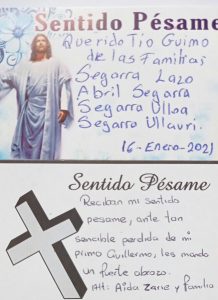 Sentido Pésame
Querido Tio Guimo
de las Familias
Segarra Lazo
Abril Segarra
Segarra Ulloa
Segarra Ullauri.
16-Enero-2021
Sentido Pésame
Reciban mi sentido
pesame, ante tan
sencible perdida de mi
primo Guillermo, les mando
un fuerte abrazo.
Att: Aida Zarie y familia